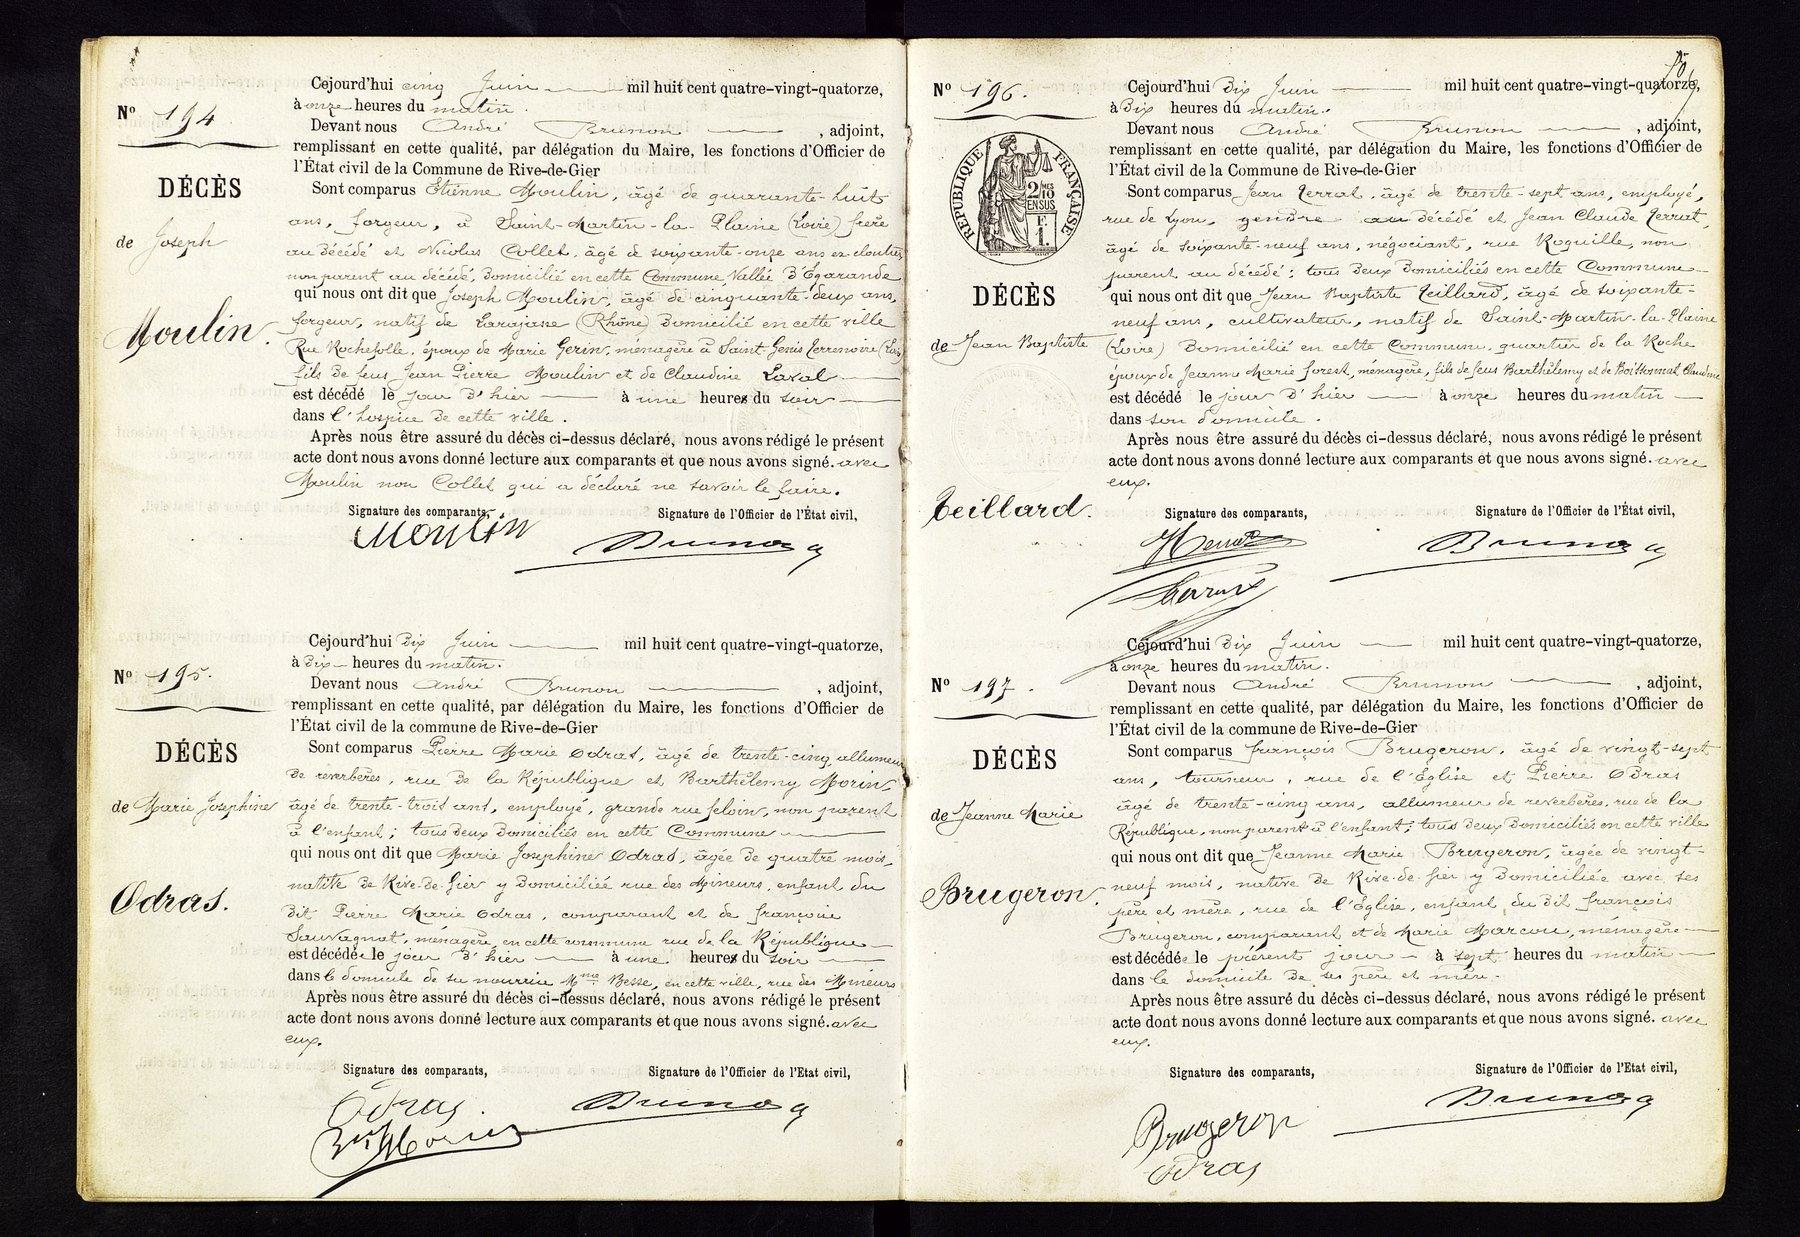 Nº 194
DÉCÈS
de Joseph
Moulin.
Cejourd'hui cinq Juin mil huit cent quatre-vingt-quatorze,
à onze heures du matin.
Devant nous André Brunon , adjoint,
remplissant en cette qualité, par délégation du Maire, les fonctions d'Officier de
l'État civil de la Commune de Rive-de-Gier
Sont comparus Etienne Moulin, âgé de quarante-huit
ans, forgeur, à Saint-Martin-la-Plaine (Loire) frère
au décédé et Nicolas Collet, âgé de soixante-onze ans ex-cloutier,
non parent au décédé, domicilié en cette Commune, Vallée d'Egarande
qui nous ont dit que Joseph Moulin, âgé de cinquante-deux ans,
forgeur, natif de Larajasse (Rhône) domicilié en cette ville
Rue Rochefolle, époux de Marie Gerin, ménagère à Saint-Genis Terrenoire (Loire)
fils de feus Jean Pierre Moulin et de Claudine Laval
est décédé le jour d'hier à une heures du soir
dans l'hospice de cette ville.
Après nous être assuré du décès ci-dessus déclaré, nous avons rédigé le présent
acte dont nous avons donné lecture aux comparants et que nous avons signé. avec
Moulin non Collet qui a déclaré ne savoir le faire.
Signature des comparants, Signature de l'Officier de l'État civil,
Moulin Brunon
Nº 195.
DÉCÈS
de Marie Josephine
Odras.
Cejourd'hui Dix Juin mil huit cent quatre-vingt-quatorze,
à Dix heures du matin.
Devant nous André Brunon , adjoint,
remplissant en cette qualité, par délégation du Maire, les fonctions d'Officier de
l'État civil de la commune de Rive-de-Gier
Sont comparus Pierre Marie Odras, âgé de trente-cinq, allumeur
de reverbères, rue de la République et Barthélemy Morin,
âgé de trente-trois ans, employé, grande rue feloin, non parent
à l'enfant; tous deux domiciliés en cette Commune
qui nous ont dit que Marie Josephine Odras, âgée de quatre mois,
native de Rive-de-Gier y domiciliée rue des Mineurs, enfant du
dit Pierre Marie Odras, comparant et de françoise
Sauvagnat, ménagère, en cette commune rue de la République
est décédée le jour d'hier à une heures du soir
dans le domicile de sa nourrice Mme Besse, en cette ville, rue des Mineurs
Après nous être assuré du décès ci-dessus déclaré, nous avons rédigé le présent
acte dont nous avons donné lecture aux comparants et que nous avons signé. avec
eux.
Signature des comparants, Signature de l'Officier de l'Etat civil,
Odras. Brunon
Morin
Nº 196.
REPUBLIQUE FRANÇAISE
2/10 MES
EN SUS
F
1.
DÉCÈS
de Jean Baptiste
Teillard.
Cejourd'hui Dix Juin mil huit cent quatre-vingt-quatorze,
à Dix heures du matin.
Devant nous André Brunon , adjoint,
remplissant en cette qualité, par délégation du Maire, les fonctions d'Officier de
l'État civil de la Commune de Rive-de-Gier
Sont comparus Jean Terrat, âgé de trente-sept ans, employé,
rue de Lyon, gendre au décédé et Jean Claude Terrat,
âgé de soixante-neuf ans, négociant, rue Roquille, non
parent au décédé; tous deux domiciliés en cette Commune
qui nous ont dit que Jean Baptiste Teillard, âgé de soixante-
neuf ans, cultivateur, natif de Saint-Martin-la-Plaine
(Loire) domicilié en cette Commune, quartier de la Roche
époux de Jeanne Marie forest, ménagère, fils de feus Barthélemy et de Boissonnat Claudine
est décédé le jour d'hier à onze heures du matin
dans son domicile.
Après nous être assuré du décès ci-dessus déclaré, nous avons rédigé le présent
acte dont nous avons donné lecture aux comparants et que nous avons signé. avec
eux.
Signature des comparants, Signature de l'Officier de l'État civil,
Brunon
Nº 197.
DÉCÈS
de Jeanne Marie
Brugeron.
Cejourd'hui Dix Juin mil huit cent quatre-vingt-quatorze,
à onze heures du matin.
Devant nous André Brunon , adjoint,
remplissant en cette qualité, par délégation du Maire, les fonctions d'Officier de
l'État civil de la commune de Rive-de-Gier
Sont comparus françois Brugeron, âgé de vingt-sept
ans, tourneur, rue de l'Église et Pierre Odras
âgé de trente-cinq ans, allumeur de reverbères, rue de la
République, non parent à l'enfant; tous deux domiciliés en cette ville
qui nous ont dit que Jeanne Marie Brugeron, âgée de vingt-
neuf mois, native de Rive-de-gier y domiciliée avec ses
père et mère, rue de l'Église, enfant du dit françois
Brugeron, comparant et de Marie Marcou, ménagère
est décédée le présent jour à sept heures du matin
dans le domicile de ses père et mère.
Après nous être assuré du décès ci-dessus déclaré, nous avons rédigé le présent
acte dont nous avons donné lecture aux comparants et que nous avons signé. avec
eux.
Signature des comparants, Signature de l'Officier de l'Etat civil,
Brugeron Brunon
Odras